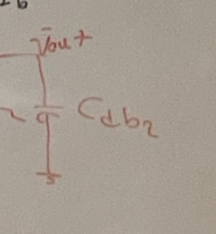 Vout
Cdb2